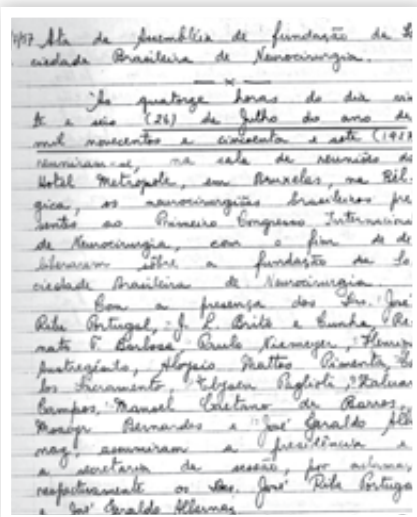 7/57 Ata da Assembléia de fundação da So
ciedade Brasileira de Neurocirurgia.
— x —
"Às quatorze horas do dia vin
te e seis (26) de Julho do ano de
mil novecentos e cincoenta e sete (1957
reuniram-se, na sala de reuniões do
Hotel Metrópole, em Bruxelas, na Bél-
gica, os neurocirurgiões brasileiros pre
sentes ao Primeiro Congresso Internacional
de Neurocirurgia, com o fim de de
liberarem sôbre a fundação da So
ciedade Brasileira de Neurocirurgia.
Com a presença dos Srs. José
Ribe Portugal, J. R. Brito e Cunha, Re
nato T. Barbosa, Paulo Niemeyer, Henrique
Austregésilo, Aloysio Mattos Pimenta, Car
los Sacramento, Elyseu Paglioli, Raluar
Campos, Manoel Caetano de Barros,
Moacyr Bernardes e José Geraldo Alb
naz, assumiram a presidência e
a secretaria da sessão, por aclamação
respectivamente os Srs. José Ribe Portugal
e José Geraldo Albernaz